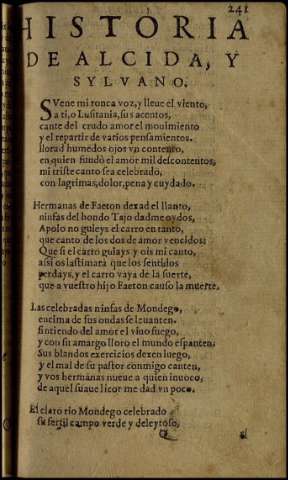 241
HISTORIA
DE ALCIDA, Y
SYLVANO.
SVene mi ronca voz, y lleue el viento,
a ti, o Lusitania, sus acentos,
cante del crudo amor el mouimiento
y el repartir de varios pensamientos.
llorad humedos ojos vn contento,
en quien fundò el amor mil descontentos,
mi triste canto sea celebrado,
con lagrimas, dolor, pena y cuydado.
Hermanas de Faeton dexad el llanto,
ninfas del hondo Tajo dadme oydos,
Apolo no guieys el carro en tanto,
que canto de los dos de amor vencidos:
Que si el carro guiays y ois mi canto,
assi os lastimarà que los sentidos
perdays, y el carro vaya de la suerte,
que a vuestro hijo Faeton causo la muerte.
Las celebradas ninfas de Mondego,
encima de sus ondas se leuanten.
sintiendo del amor el viuo fuego,
y con su amargo lloro el mundo espanten,
Sus blandos exercicios dexen luego,
y el mal de su pastor conmigo canten,
y vos hermanas nueue a quien inuoco,
de aquel suaue licor me dad vn poco.
El claro rio Mondego celebrado
su fertil campo verde y deleytoso,
el